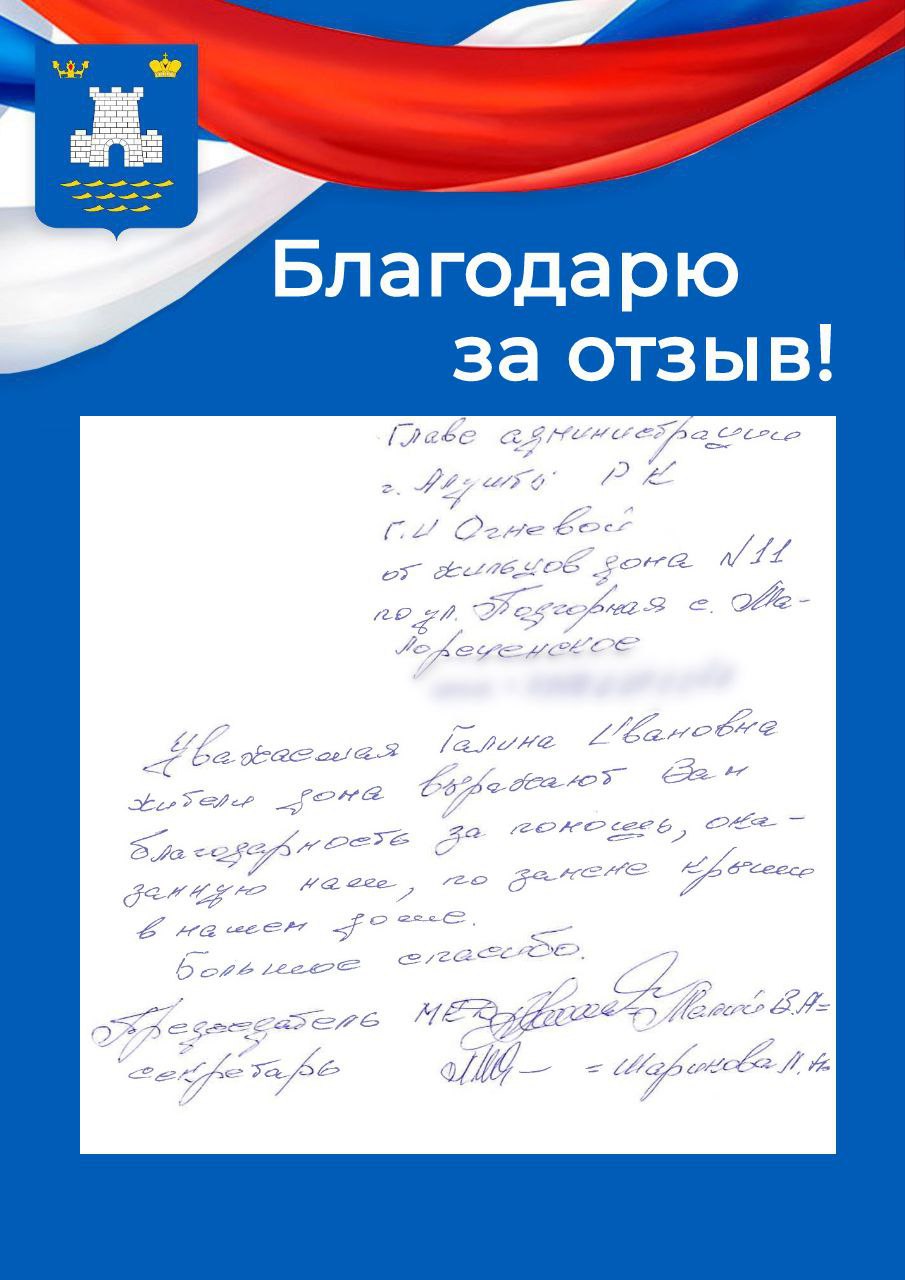 Благодарю
за отзыв!
Главе администрации
г. Алушты РК
Г.И Огневой
от жильцов дома N11
по ул. Подгорная с. Ма-
лореченское
Уважаемая Галина Ивановна
жители дома выражают Вам
благодарность за помощь, ока-
занную нам, по замене крыши
в нашем доме.
Большое спасибо.
Председатель В.А=
секретарь = Шаринова